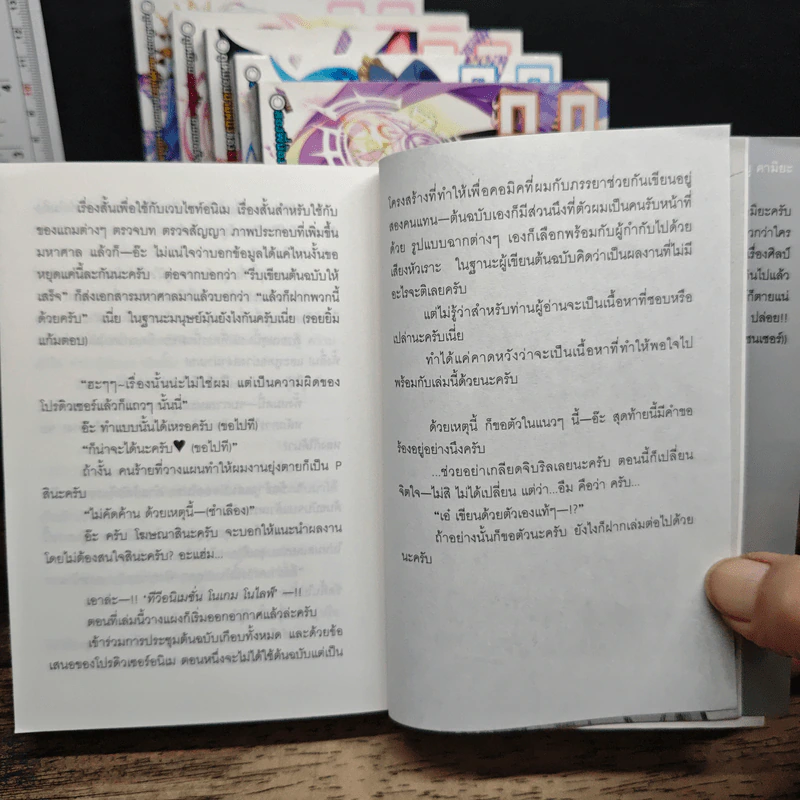 เรื่องสั้นเพื่อใช้กับเวบไซท์อนิเม เรื่องสั้นสำหรับใช้กับ
ของแถมต่างๆ ตรวจบท ตรวจสัญญา ภาพประกอบที่เพิ่มขึ้น
มหาศาล แล้วก็—อ๊ะ ไม่แน่ใจว่าบอกข้อมูลได้แค่ไหนงั้นขอ
หยุดแค่นี้ละกันนะครับ ต่อจากบอกว่า "รีบเขียนต้นฉบับให้
เสร็จ" ก็ส่งเอกสารมหาศาลมาแล้วบอกว่า "แล้วก็ฝากพวกนี้
ด้วยครับ" เนี่ย ในฐานะมนุษย์มันยังไงกันครับเนี่ย (รอยยิ้ม
แก้มตอบ)
"ฮะๆๆ~เรื่องนั้นน่ะไม่ใช่ผม แต่เป็นความผิดของ
โปรดิวเซอร์แล้วก็แถวๆ นั้นนี่"
อ๊ะ ทำแบบนั้นได้เหรอครับ (ขอไปที)
"ก็น่าจะได้นะครับ♥ (ขอไปที)"
ถ้างั้น คนร้ายที่วางแผนทำให้ผมงานยุ่งตายก็เป็น P
สินะครับ
"ไม่คัดค้าน ด้วยเหตุนี้—(ชำเลือง)"
อ๊ะ ครับ โฆษณาสินะครับ จะบอกให้แนะนำผลงาน
โดยไม่ต้องสนใจสินะครับ? อะแฮ่ม...
เอาล่ะ—!! 'ทีวีอนิเมชั่น โนเกม โนไลฟ์' —!!
ตอนที่เล่มนี้วางแผงก็เริ่มออกอากาศแล้วล่ะครับ
เข้าร่วมการประชุมต้นฉบับเกือบทั้งหมด และด้วยข้อ
เสนอของโปรดิวเซอร์อนิเม ตอนหนึ่งจะไม่ได้ใช้ต้นฉบับแต่เป็น
โครงสร้างที่ทำให้เพื่อคอมิคที่ผมกับภรรยาช่วยกันเขียนอยู่
สองคนแทน—ต้นฉบับเองก็มีส่วนนึงที่ตัวผมเป็นคนรับหน้าที่
ด้วย รูปแบบฉากต่างๆ เองก็เลือกพร้อมกับผู้กำกับไปด้วย
เสียงหัวเราะ ในฐานะผู้เขียนต้นฉบับคิดว่าเป็นผลงานที่ไม่มี
อะไรจะติเลยครับ
แต่ไม่รู้ว่าสำหรับท่านผู้อ่านจะเป็นเนื้อหาที่ชอบหรือ
เปล่านะครับเนี่ย
ทำได้แค่คาดหวังว่าจะเป็นเนื้อหาที่ทำให้พอใจไป
พร้อมกับเล่มนี้ด้วยนะครับ
ด้วยเหตุนี้ ก็ขอตัวในแนวๆ นี้—อ๊ะ สุดท้ายนี้มีคำขอ
ร้องอยู่อย่างนึงครับ
...ช่วยอย่าเกลียดจิบริลเลยนะครับ ตอนนี้ก็เปลี่ยน
จิตใจ—ไม่สิ ไม่ได้เปลี่ยน แต่ว่า...อืม คือว่า ครับ...
"เอ๋ เขียนด้วยตัวเองแท้ๆ—!?"
ถ้าอย่างนั้นก็ขอตัวนะครับ ยังไงก็ฝากเล่มต่อไปด้วย
นะครับ
คามิยะ
มิยะครับ
วกว่าใคร
เรื่องศิลป์
นไปแล้ว
ก็ตายแน่
ปล่อย!!
ซนเซอร์)